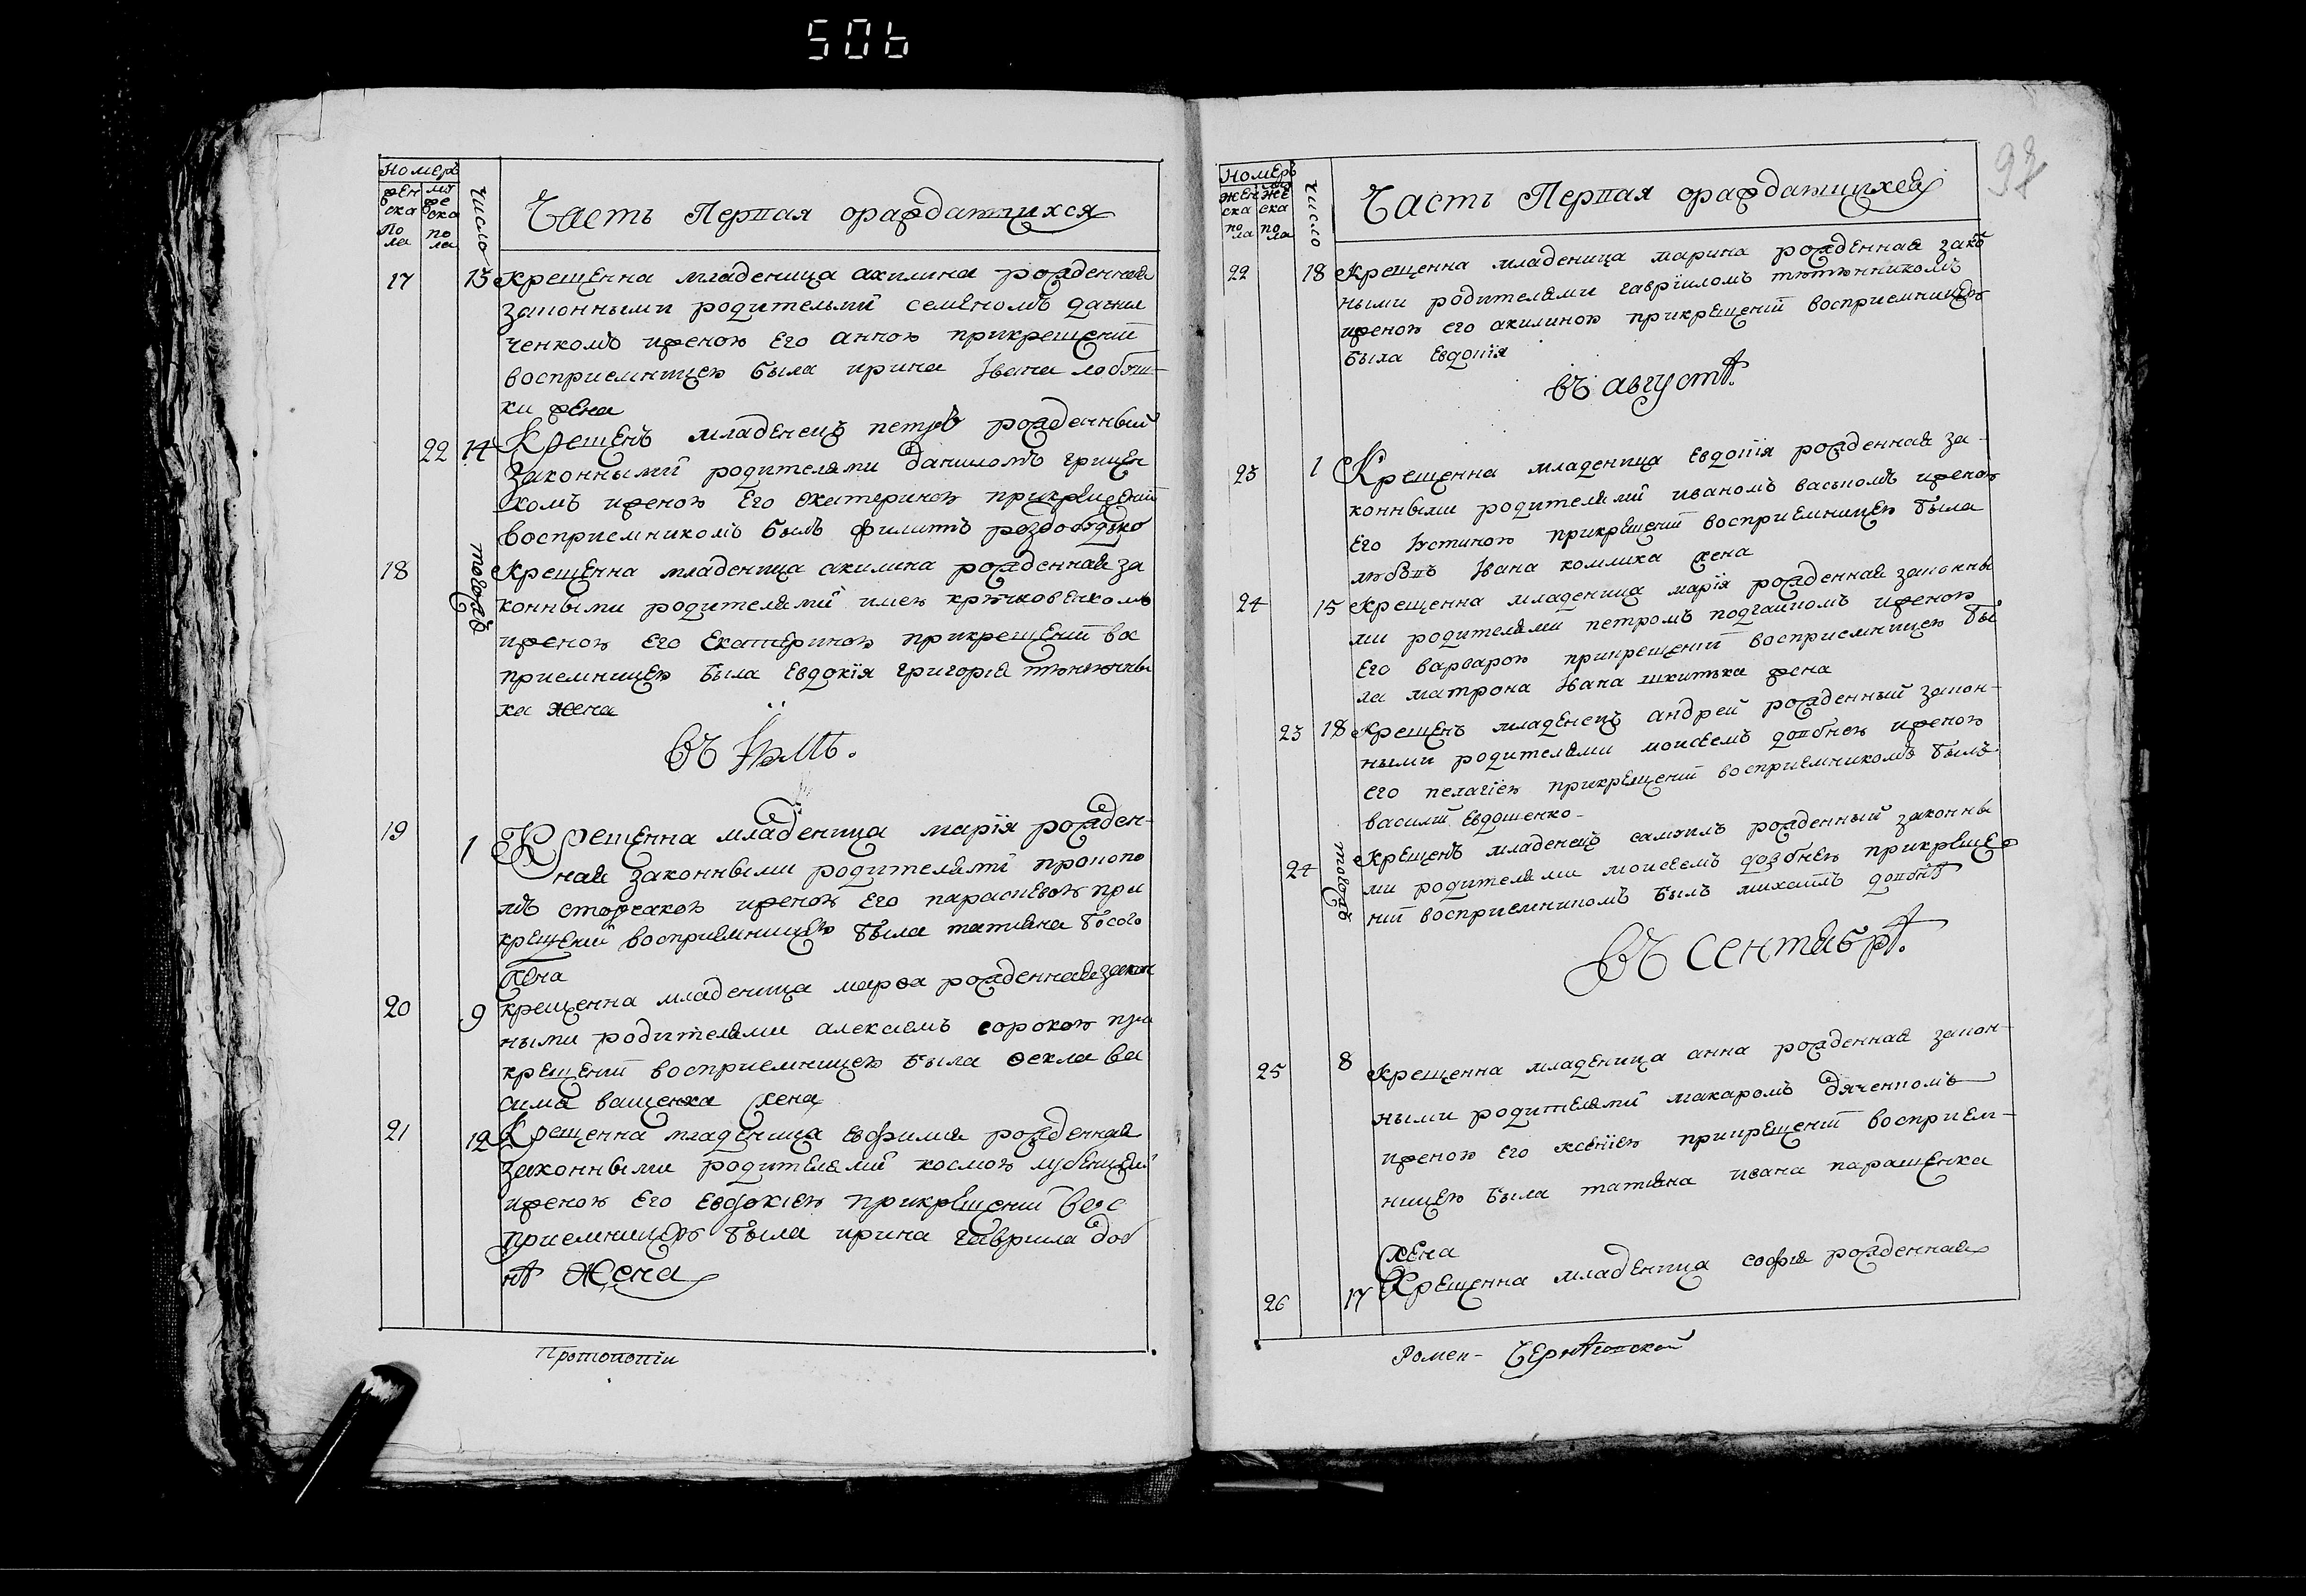 506
Номеръ
жен ска По ла
му же ска по ла
Число
Часть Первая ораждающихся
17 13 Крещенна младеница акилина рожденная
законными родительми семеномъ
ченкомъ иженою Его анною прикрещенїи
восприемницею была ирина Iвана
ки жена
22 14 Крещенъ младенецъ петръ рожденный
Законными родителями данииломъ грицен
комъ иженою Его екатериною прикрещенїи
восприемникомъ былъ филиппъ
18 тогожъ Крещенна младеница акилина рожденная за
конными родителями
иженою его Екатериною прикрещенїи вос
приемницею была Евдокїя григорїя
ка жена
въ Iюлѣ.
19 1 Крещенна младеница марїя рожден-
ная законными родителями прокопо
мъ сторжакою иженою Его параскевою при
крещенїи восприемницею была татияна босого
жена
20 9 крещенна младеница марѳа рожденная закон
ными родителями алексѣемъ сорокою при
крещенїи восприемницею была ѳекла ва
силя ващенка жена
21 12 Крещенна младеница евфимия рожденная
законными родителями космою
иженою Его евдокиею прикрещенїи вос
приемницею была ирина гавриила дов
нѣ Жена
Протопопїи
97
Номеръ
жен ска по ла
му же ска по ла
Число
Часть Первая ораждающихся
22 18 Крещенна младеница марина рожденная зако
ными родителями гаврїиломъ тютюнникомъ
иженою его акилиною прикрещенїи восприемницею
была Евдокїя
въ августѣ.
23 1 Крещенна младеница Евдокїя рожденная за-
конными родителями иваномъ васькомъ иженою
Его Iустиною прикрещенїи восприемницею была
любовь Iвана комлика жена
24 15 Крещенна младеница марїя рожденная законны
ми родителями петромъ подгайномъ иженою
Его варварою прикрещенїи восприемницею бы
ла матрона Iвана шкитька жена
23 18 Крещенъ младенецъ андрей рожденный закон-
ными родителями моисѣемъ довбнею иженою
его пелагїею прикрещенїи восприемникомъ былъ
василїй Евдошенко-
24 тогожъ Крещенъ младенецъ самоилъ рожденный законны
ми родителями моисѣемъ довбнею прикреще
нїи восприемникомъ былъ михаилъ довбнѣ
въ сентябрѣ.
25 8 Крещенна младеница анна рожденная закон-
ными родителями макаромъ дяченкомъ
иженою его ксенїею прикрещенїи восприем-
ницею была татияна ивана паращенка
жена
26 17 Крещенна младеница софїя рожденная
Ромен- Чернѣговской